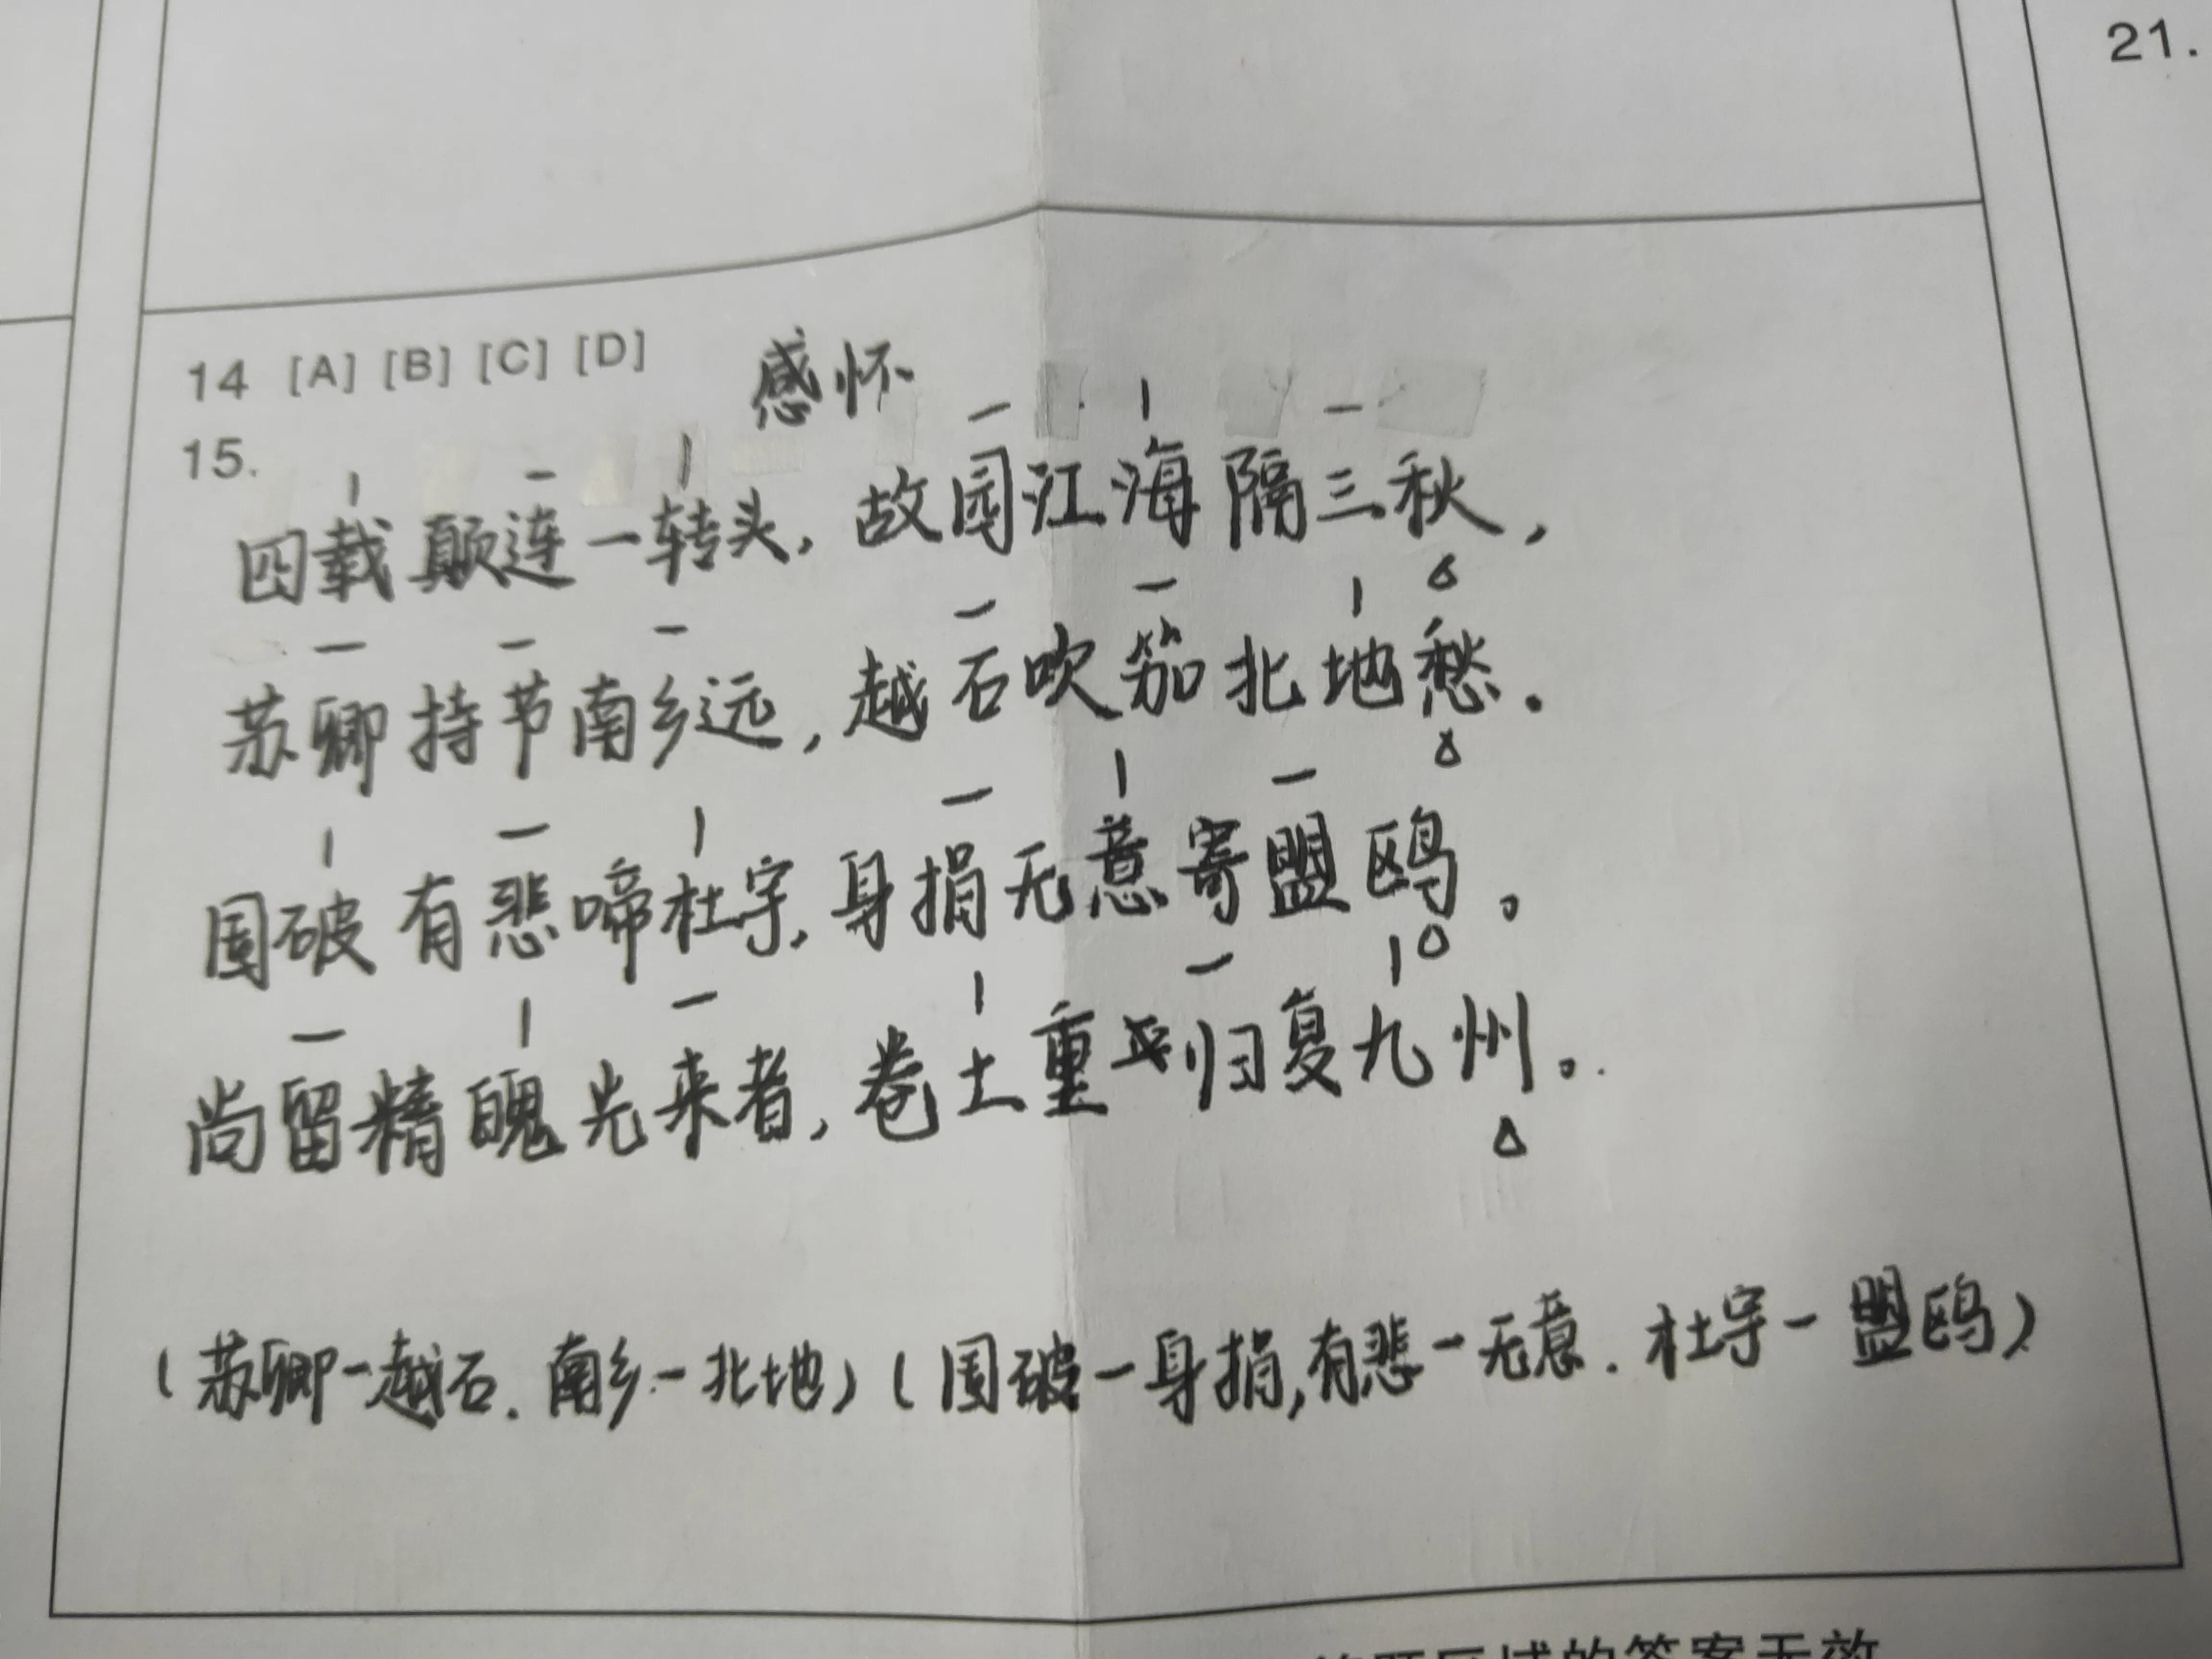 21.
14 [A] [B] [C] [D] 感怀
15.
四载颠连一转头,故园江海隔三秋,
苏卿持节南乡远,越石吹笳北地愁.
国破有悲啼杜宇,身捐无意寄盟鸥。
尚留精魄光来者,卷土重 归复九州。
(苏卿-越石.南乡-北地)(国破-身捐,有悲-无意.杜宇-盟鸥)